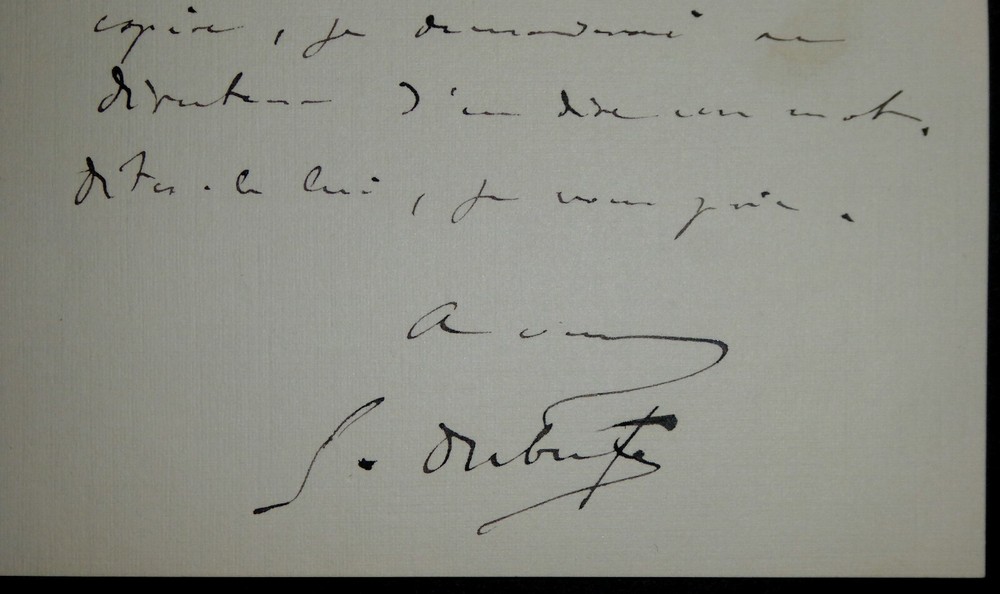 copie, je demanderai au
directeur d'en dire un mot.
dites-le lui, je vous prie.
A vous
G. Dubufe